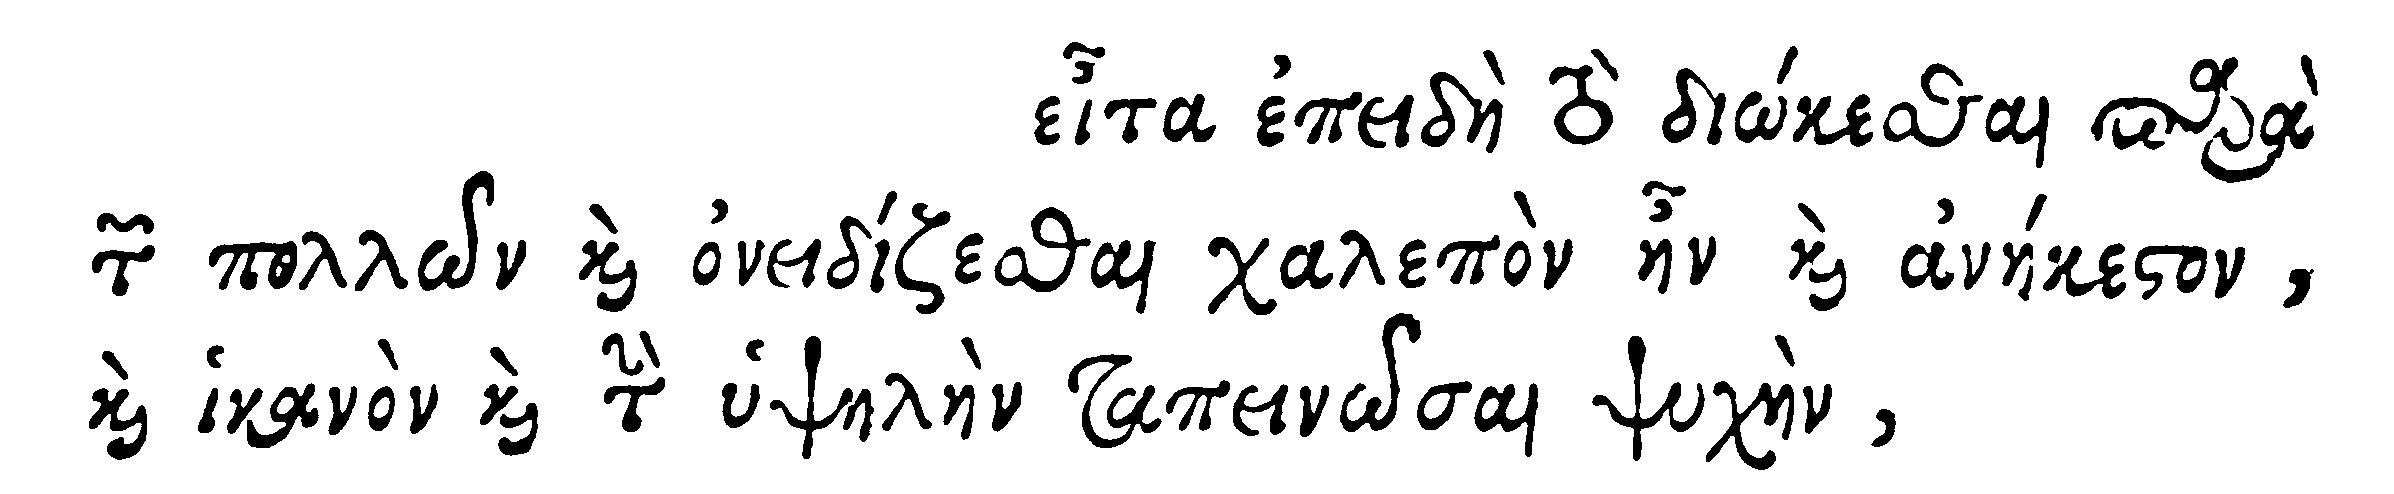 εἶτα ἐπειδὴ τὸ διώκεσθαι παρὰ
τῶν πολλῶν καὶ ὀνειδίζεσθαι χαλεπὸν ἦν καὶ ἀνήκεστον,
καὶ ἱκανὸν καὶ τὴν ὑψηλὴν ταπεινῶσαι ψυχὴν,